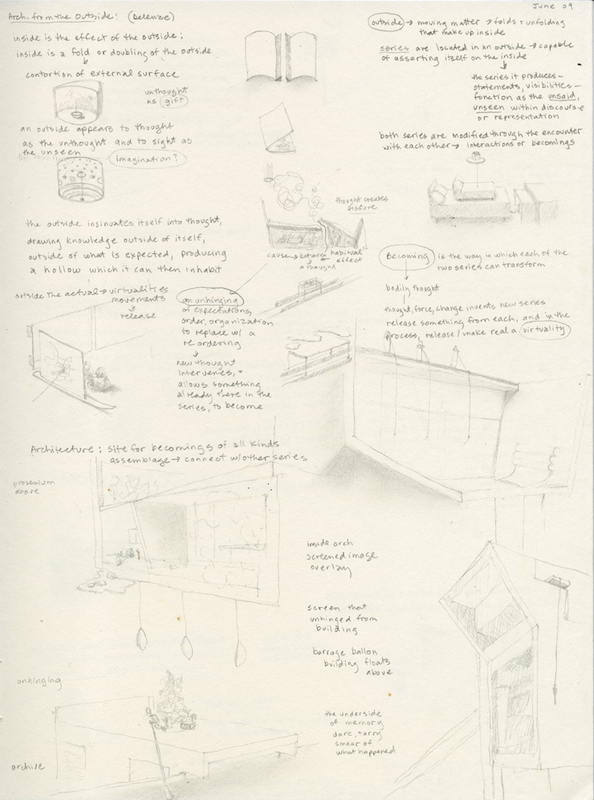 June 09
Arch. from the Outside: (Deleuze)
inside is the effect of the outside:
inside is a fold or doubling of the outside
contortion of external surface
unthought
as (gift)
an outside appears to thought
as the unthought and to sight as
the unseen
imagination?
the outside insinuates itself into thought,
drawing knowledge outside of itself,
outside of what is expected, producing
a hollow which it can then inhabit
outside the actual → virtualities
movements
release
an unhinging
of expectations,
order, organization
to replace w/ a
re ordering
new thought
intervenes,
allows something
already there in the
series, to become
thought creates
causes
habitual
effect
a thought
outside → moving matter → folds + unfolding
that make up inside
series are located in an outside → capable
of asserting itself on the inside
the series it produces –
statements, visibilities –
function as the unsaid,
unseen within discourse
or representation
both series are modified through the encounter
with each other → interactions or becomings
Becoming is the way in which each of the
two series can transform
bodily thought
thought, force, change invents new series
release something from each, and in the
process, release / make real a virtuality
Architecture: site for becomings of all kinds
assemblage → connect w/ other series
proscenium
above
inside arch
screened image
overlay
screen that
unhinged from
building
barrage ballon
building floats
above
unhinging
the underside
of memory
dark, tarry
smear of
what happened
archive